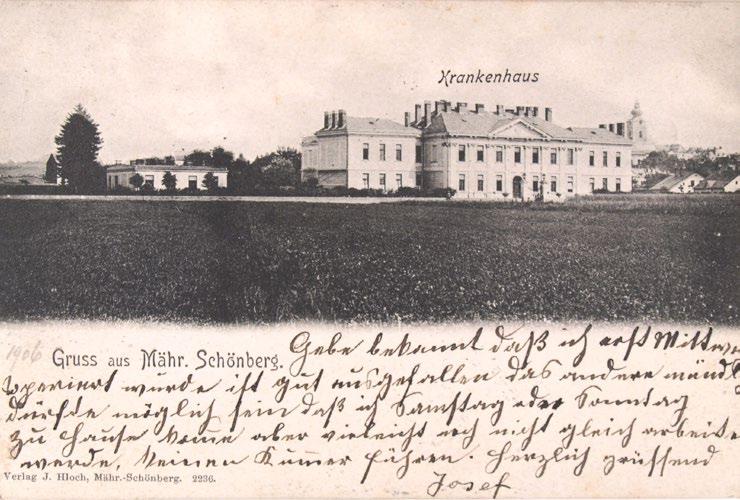 Krankenhaus
1906
Gruss aus Mähr. Schönberg.
Gebe bekannt daß ich erst Mittwo
operiert wurde ist gut ausgefallen das andere münd
dürfte möglich sein daß ich Samstag oder Sonntag
zu Hause komme aber vieleicht noch nicht gleich arbeite
werde, keinen Kummer führen. Herzlich grüssend
Josef
Verlag J. Hloch, Mähr.-Schönberg. 2236.